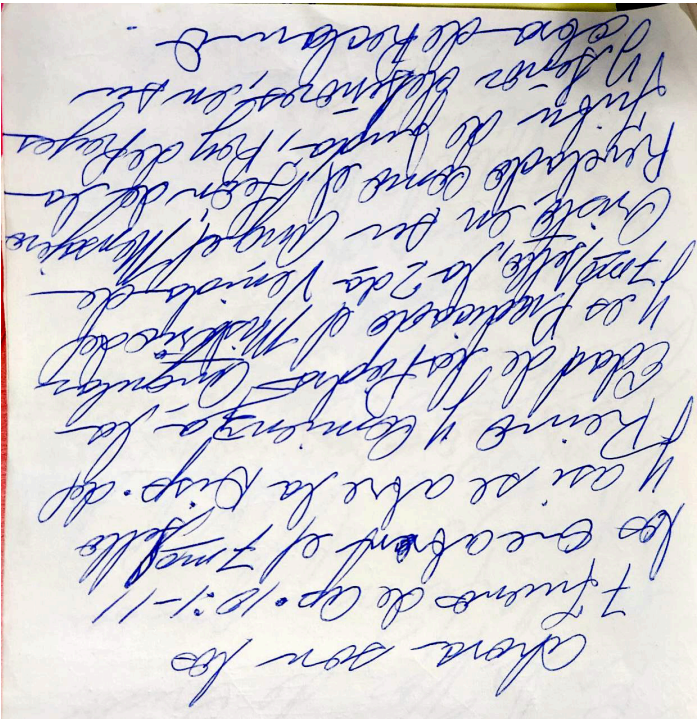 Ahora son los
7 truenos de Ap. 10:1-11
los que abren el 7mo Sello
y asi se abre la Disp. del
Reino y comienza la
Edad de La Piedra Angular
y es Predicado el Misterio del
7mo Sello, la 2da Venida de
Cristo en su Angel Mensajero
Revelado como el León de la
tribu de Judá, Rey de Reyes
y Señor de Señores, en su
obra de Reclamo.